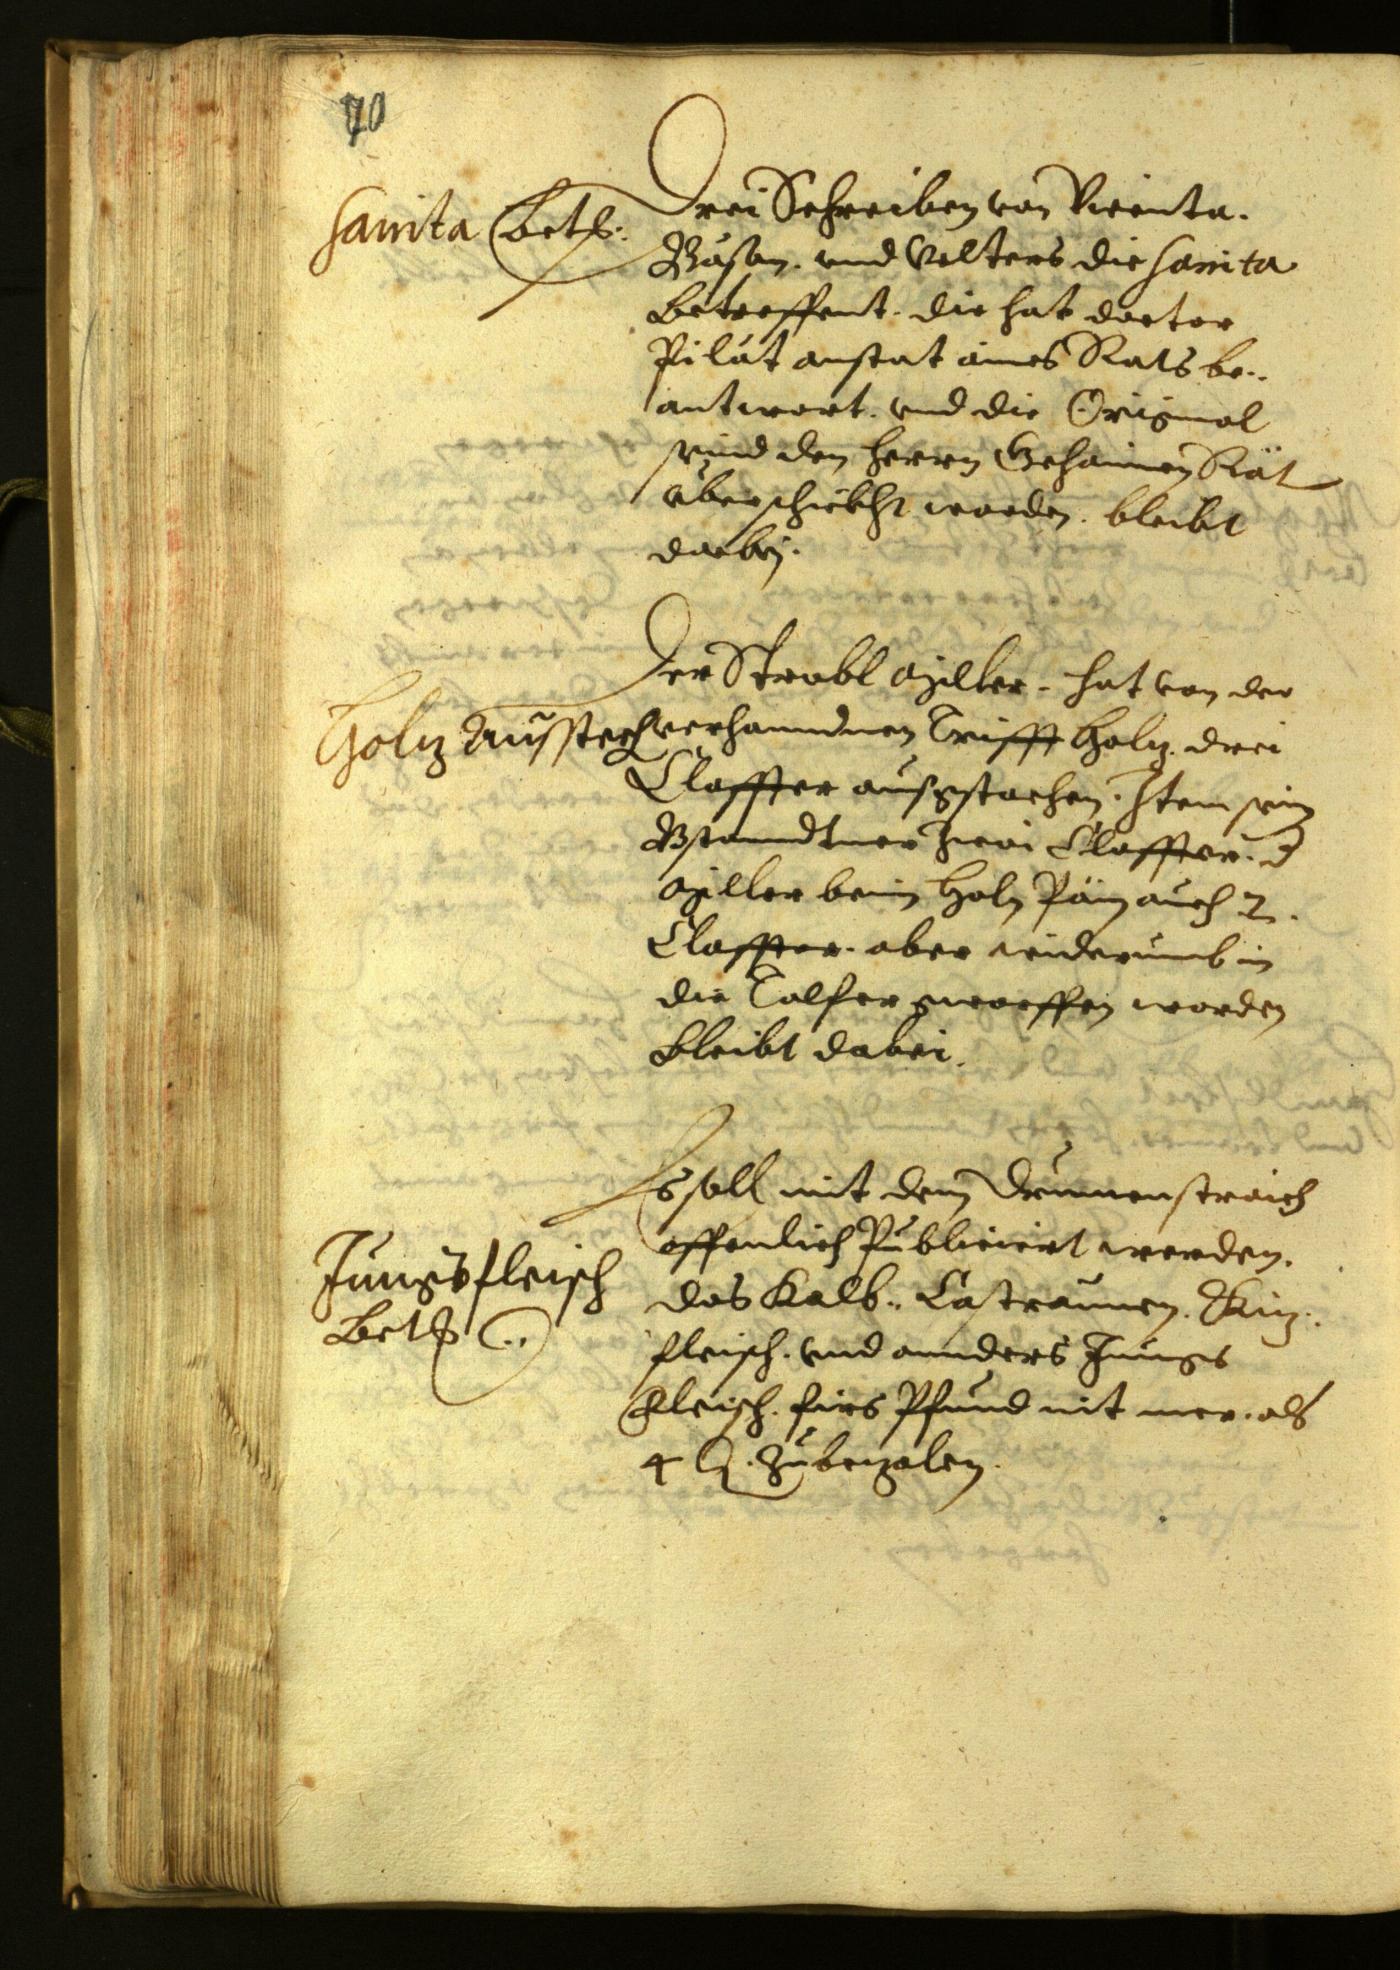 70
Sanita Betr:
Drei Schreiben von Vicenta.
Basan. vnd Velters die Sanita
betreffent. die hat doctor
Pilat anstat aines Rats be-
antwort. vnd die Original
seind den herrn Gehaimen Rät
überschickht worden. bleibt
darbej.
Holz ausstech
Der Strobl Müller. hat von der
verhanndnen Trifft Holz. drei
Claffter ausgstochen. Item sein
Bstanndtner zwai Claffter. d
Müller beim Holz auch 2.
Claffter. aber widerumb in
die Talfer gworffen worden
bleibt dabei.
Jungs fleisch
Betr:
Es soll mit dem Drumenstraich
offenlich Publiciert werden.
das Kalb. Castraunen. Kiz.
fleisch. vnd annders Jungs
fleisch. fürs Pfund nit mer. als
4 zubezalen.